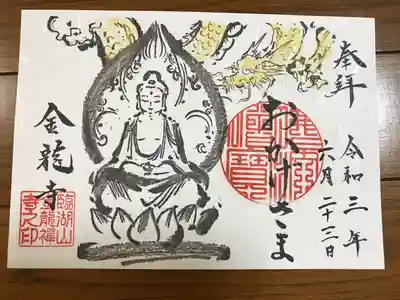 奉拝
令和三年
六月二十三日
おかげさま
金龍寺
臨湖山
金龍禅
寺之印